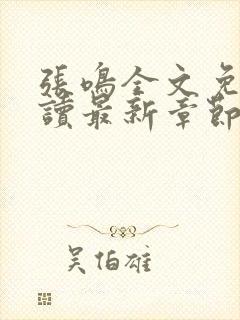 張鳴全文免
讀最新章節
吳伯雄